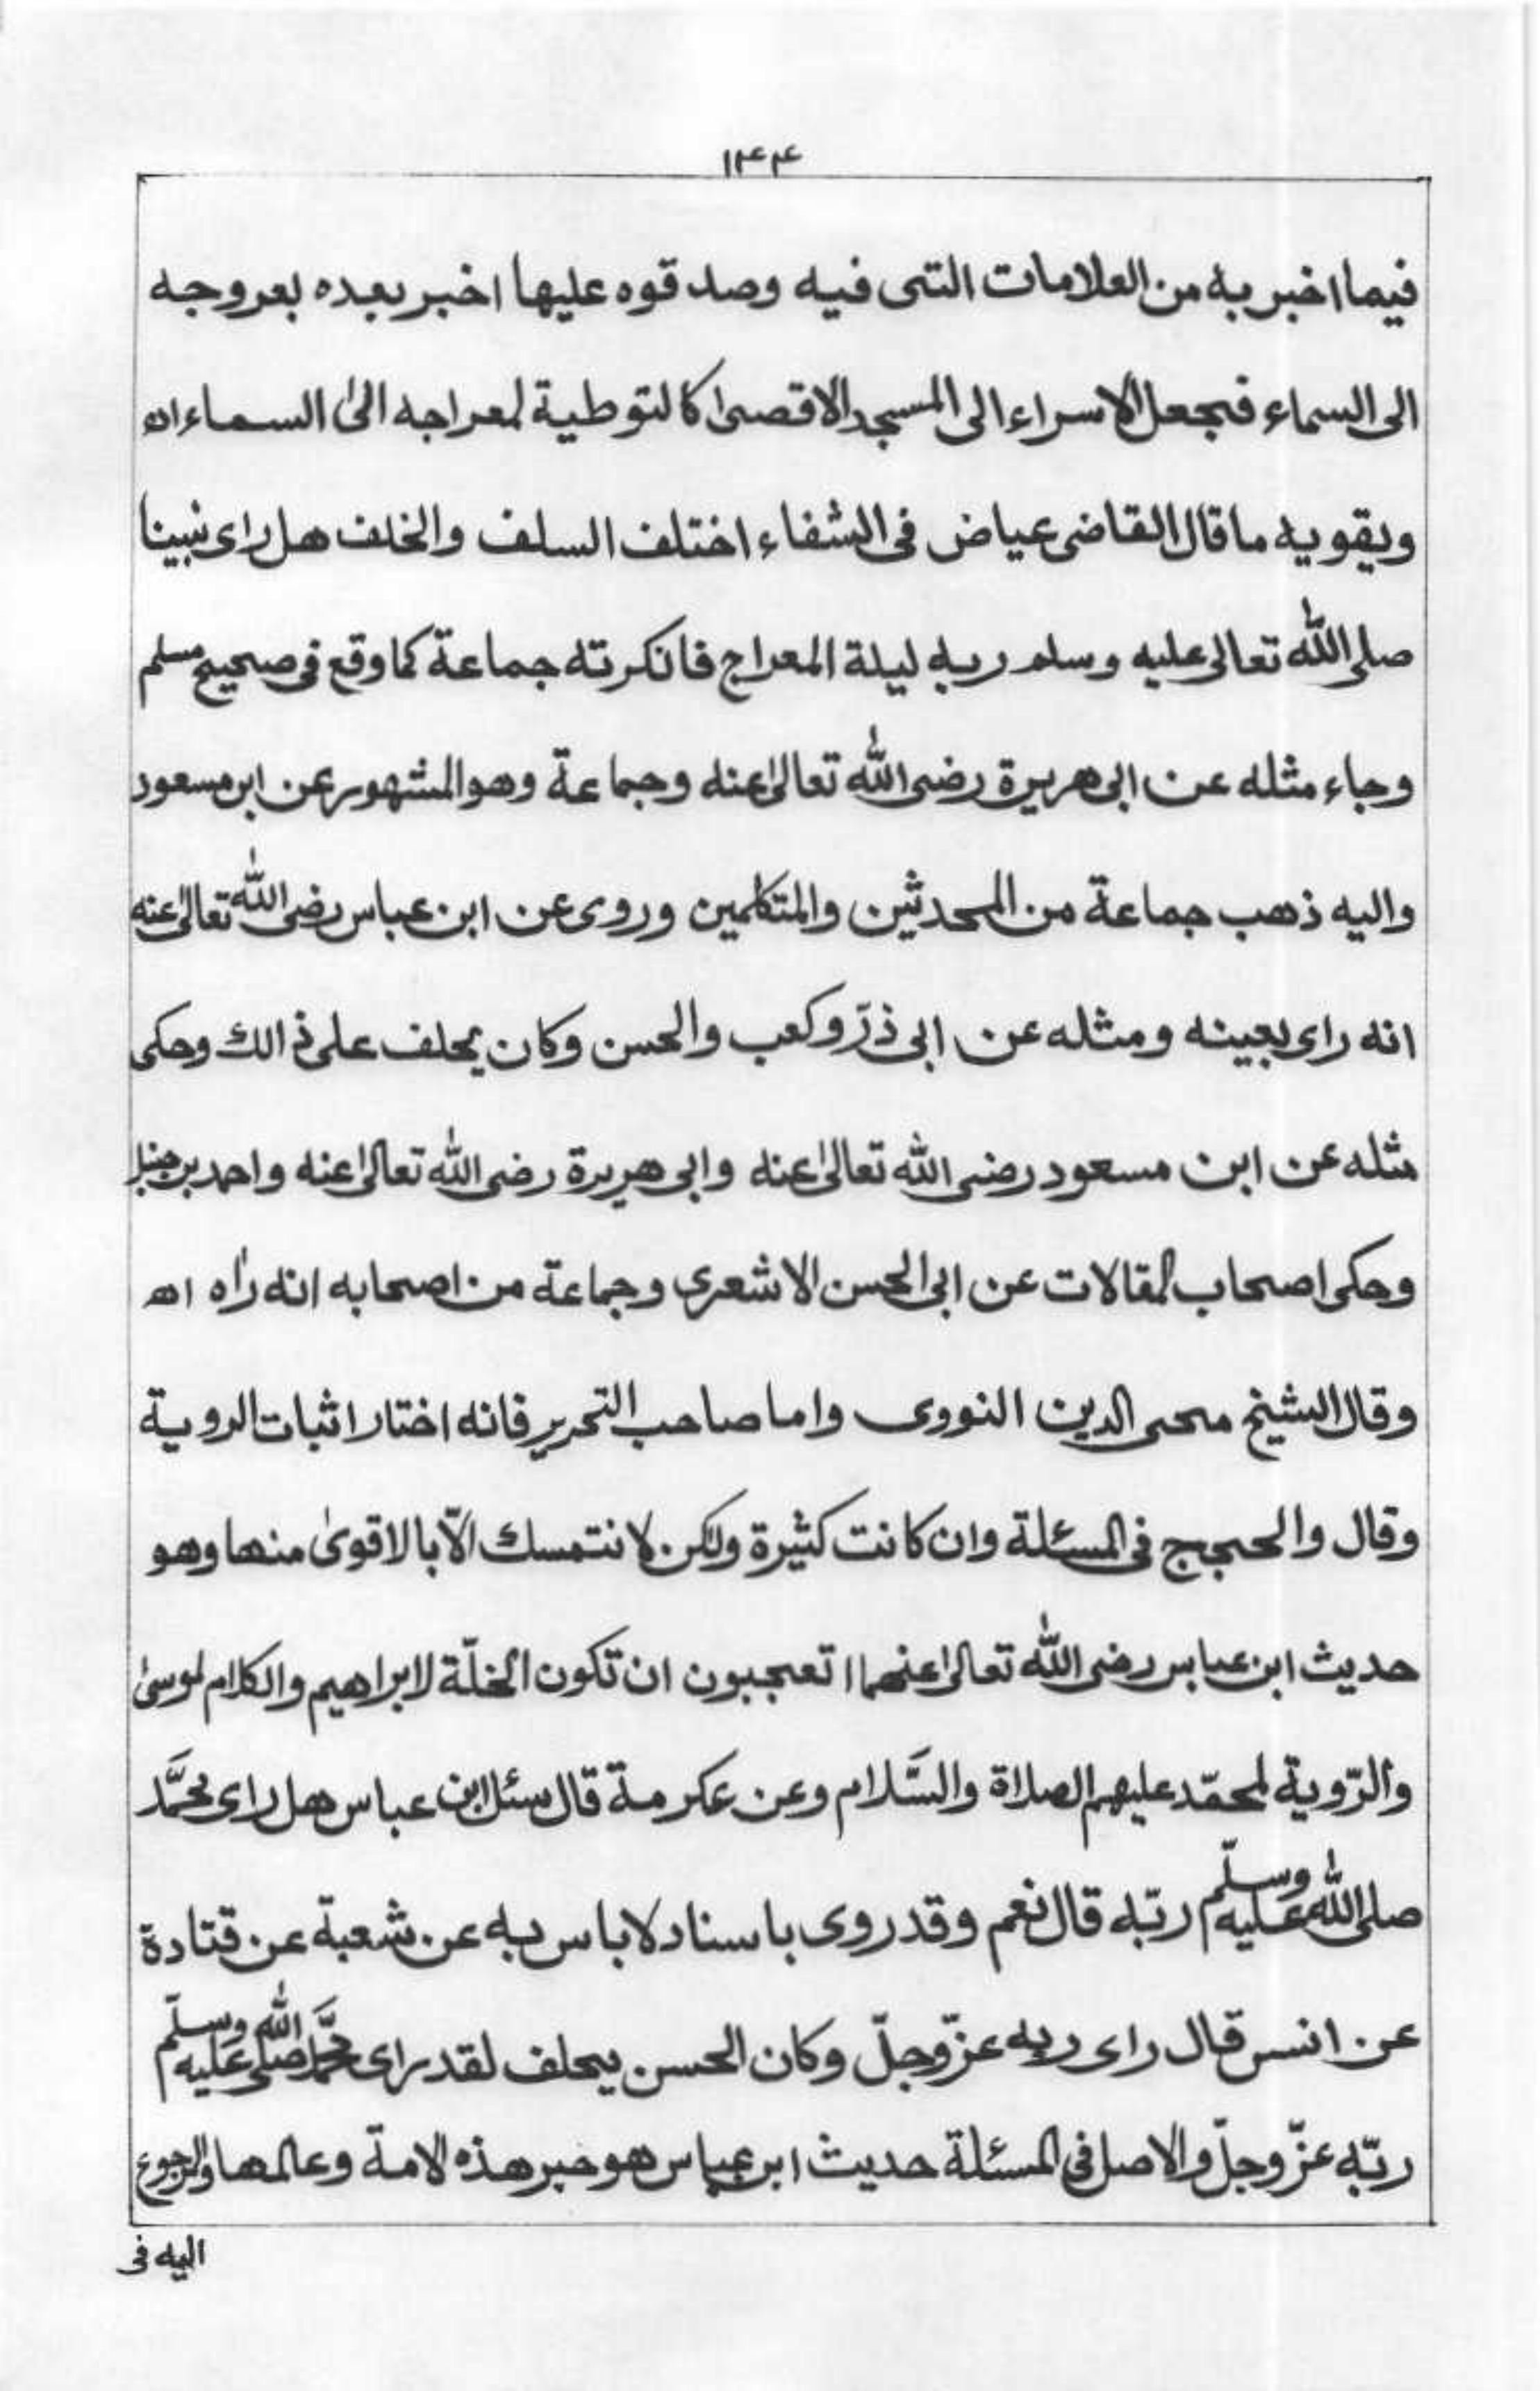 ١٢٤٤
فيما اخبر به من العلامات التى فيه وصدقوه عليها اخبر بعده بعروجه
الى السماء فجعل الاسراء الى المسجد الاقصىٰ كالتوطية لمعراجه الىٰ السماء اه
ويقويه ما قال القاضى عياض فى الشفاء اختلف السلف والخلف هل راى نبينا
صلى الله تعالى عليه وسلم ربه ليلة المعراج فانكرته جماعة كما وقع فى صحيح مسلم
وجاء مثله عن ابى هريرة رضى الله تعالىٰ عنه وجماعة وهو المشهور عن ابن مسعود
واليه ذهب جماعة من المحدثين والمتكلمين وروى عن ابن عباس رضى الله تعالىٰ عنه
انه راى بعينه ومثله عن ابى ذرّ وكعب والحسن وكان يحلف على ذالك وحكى
مثله عن ابن مسعود رضى الله تعالىٰ عنه وابى هريرة رضى الله تعالىٰ عنه واحمد بن حنبل
وحكى اصحاب المقالات عن ابى الحسن الاشعرى وجماعة من اصحابه انه راٰه اه
وقال الشيخ محى الدين النووى واما صاحب التحرير فانه اختار اثبات الروية
وقال والحجج فى المسئلة وان كانت كثيرة ولكن لا نتمسك الّا بالاقوىٰ منها وهو
حديث ابن عباس رضى الله تعالىٰ عنهما ا تعجبون ان تكون الخلّة لابراهيم والكلام لموسىٰ
والرّوية لمحمّد عليهم الصلاة والسَّلام وعن عكرمة قال سئل ابن عباس هل راى محمَّد
صلى الله عليه وسلّم ربّه قال نعم وقد روى باسناد لا باس به عن شعبة عن قتادة
عن انس قال راى ربه عزّ وجلّ وكان الحسن يحلف لقد راى محمَّد صلى الله عليه وسلّم
ربّه عزّ وجلّ والاصل فى المسئلة حديث ابن عباس هو حبر هذه الامة وعالمها والرجوع
اليه فى